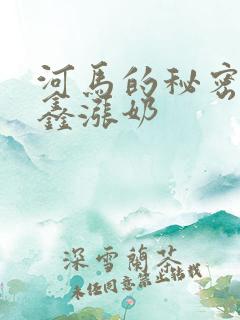 河马的秘密
鑫涨奶
深雪兰茶
未经同意禁止转载